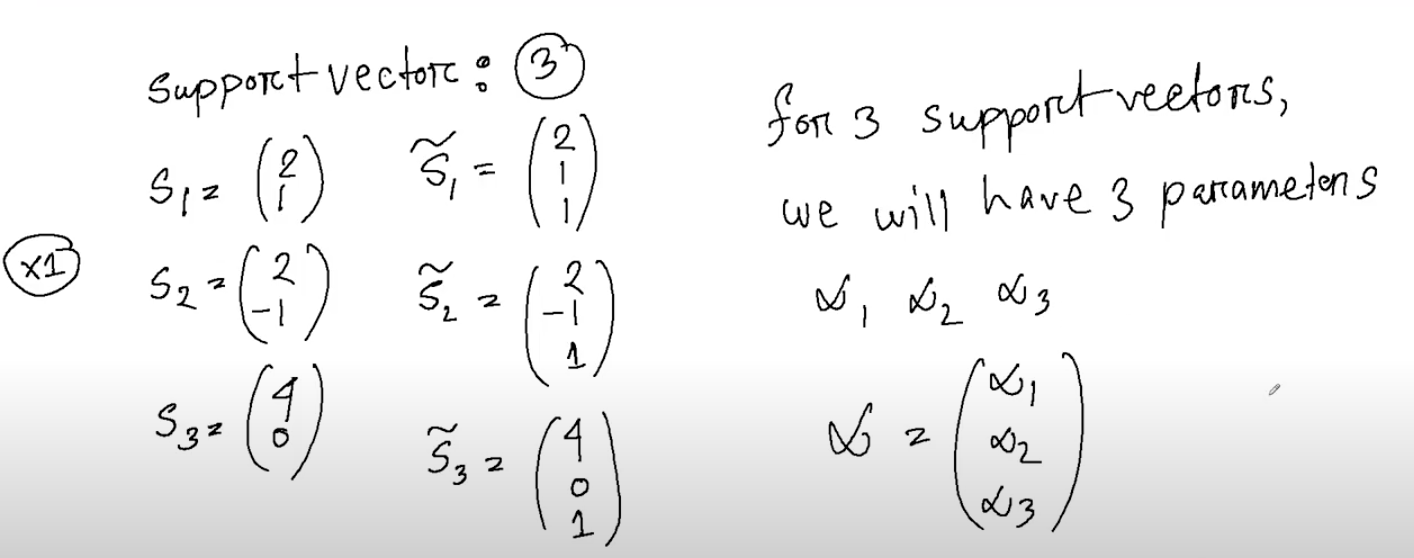 Support vector: 3
S1 = (2 1)
S̃1 = (2 1 1)
x1
S2 = (2 -1)
S̃2 = (2 -1 1)
S3 = (4 0)
S̃3 = (4 0 1)
for 3 support vectors,
we will have 3 parameters
α1 α2 α3
α = (α1 α2 α3)